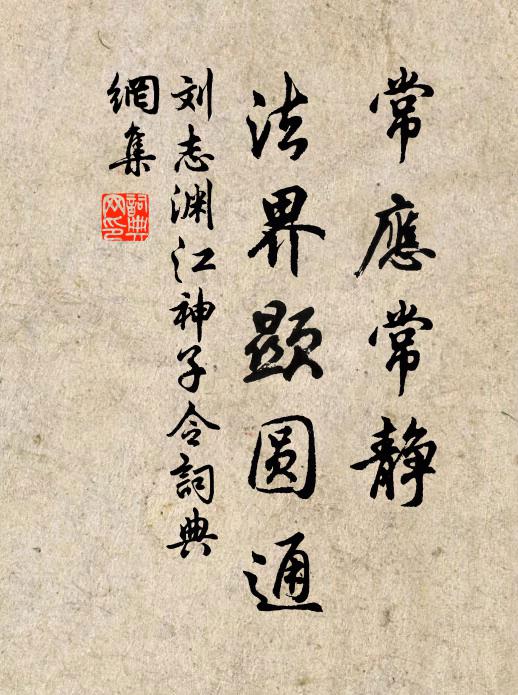 常應常静
法界顯圆通
刘志渊江神子令詞典
網集
詞典
网印